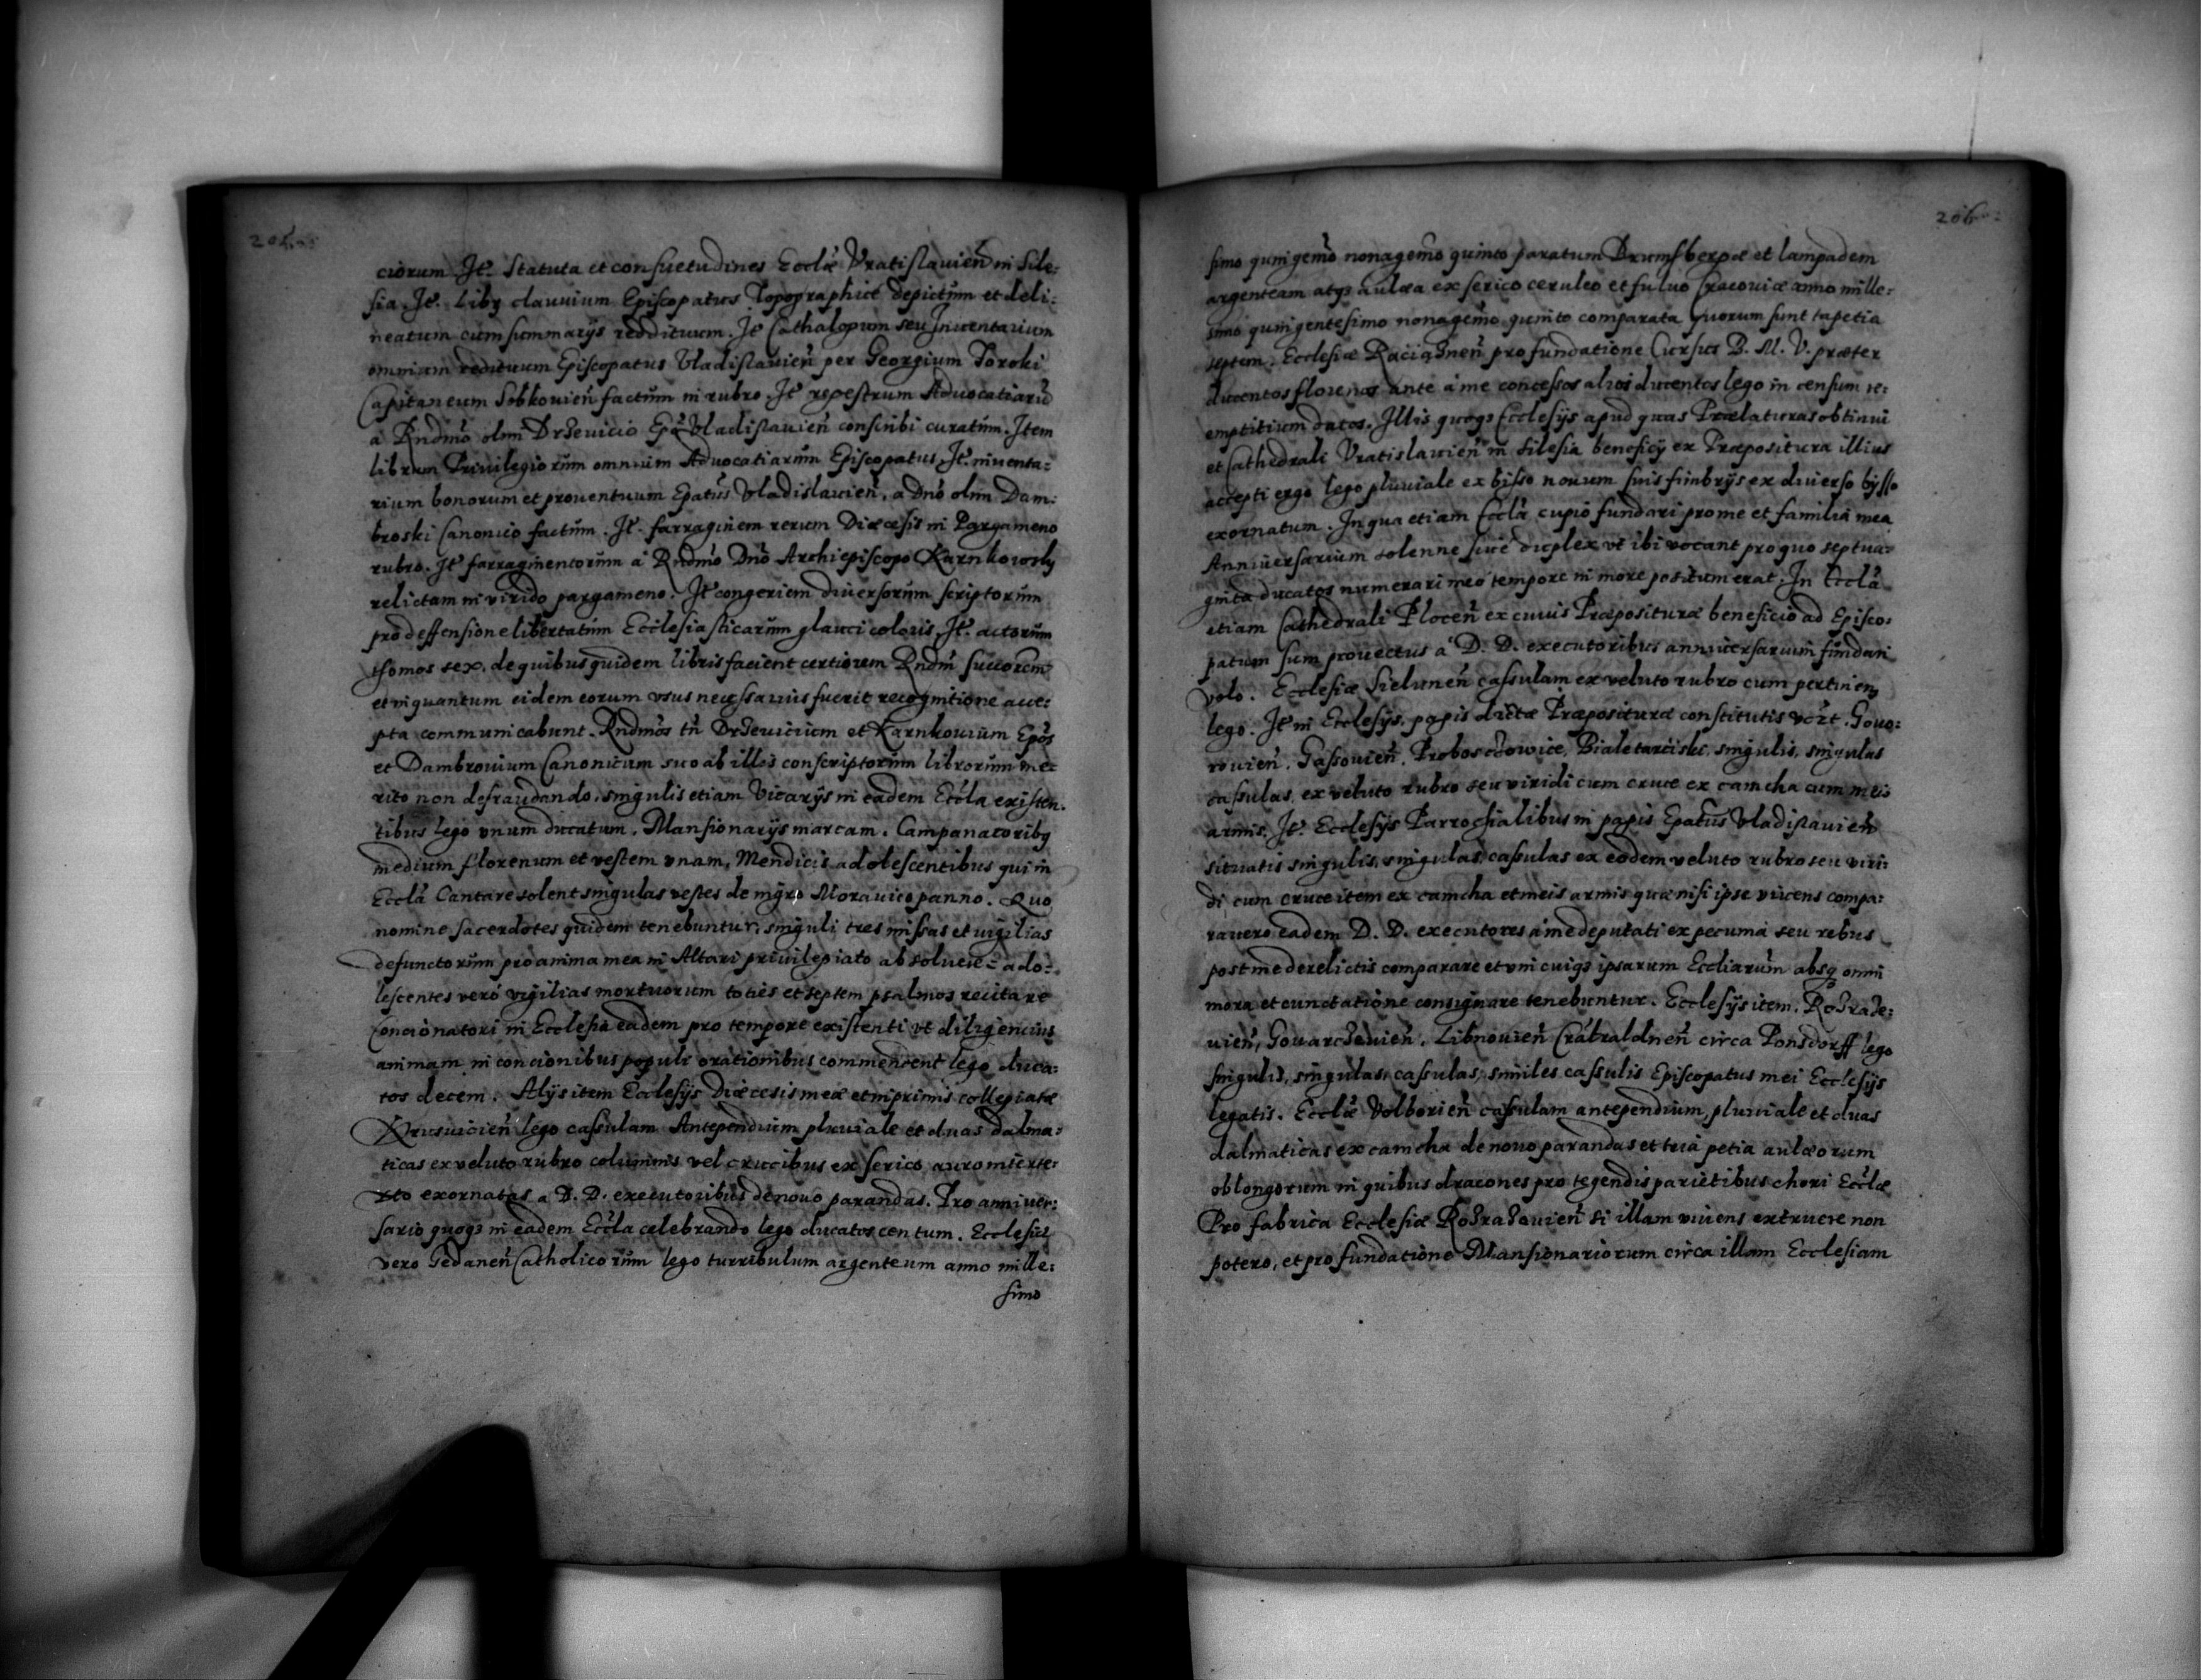 205
ciorum Ite. Statuta et consuetudines Ecclæ Vratislavien in Sile:
sia. Ite. Libr clavium Episcopatus Topographicè depictum et deli:
neatum cum summarijs reddituum. Ite Cathalogum seu Inventarium
omnium redituum Episcopatus Vladislavien per Georgium Toroki
Capitaneum Sobkovien factum in rubro. Ite regestrum Advocatiarũ
a Rndmo olim Drzevicio Epo Vladislavien conscribi curatum. Item
librum Privilegiorum omnium Advocatiarum Episcopatus, Ite. inventa=
rium bonorum et proventuum Epatus Vladislavien, a Dno olim Dam:
broski Canonico factum. Ite. farraginem rerum Diæcesis in Pargameno
rubro. Ite farraginentorum a Rndmo Dno Archiepiscopo Karnkowsky
relictam in virido pargameno. Ite congeriem diversorum scriptorum
pro deffensione libertatum Ecclesiasticarum glauci coloris, Ite. actorum
thomos sex. de quibus quidem libris facient certiorem Rndm succorem
et inquantum eidem eorum usus necessarius fuerit recognitione acce:
pta communicabunt. Rndmos tn Drzevicium et Karnkovium Epos
et Dambrovium Canonicum suo ab illis conscriptorum librorum me:
rito non defraudando, singulis etiam Vicarijs in eadem Eccla existen.
tibus lego unum ducatum. Mansionarijs marcam. Campanatoribq
medium florenum et vestem unam, Mendicis adolescentibus qui in
Eccla Cantare solent singulas vestes de nigro Moravico panno. Quo
nomine sacerdotes quidem tenebuntur, singuli tres missas et vigilias
defunctorum pro anima mea in Altari privilegiato absolvere ado=
lescentes verò vigilias mortuorum toties et septem psalmos recitare
Concionatori in Ecclesia eadem pro tempore existenti ut diligencius
animam in concionibus populi orationibus commendent lego duca:
tos decem. Alijs item Ecclesijs Diæcesis meæ et inprimis collegiatæ
Krusvicien lego cassulam Antependium pluviale et duas dalma:
ticas ex veluto rubro columnis vel crucibus ex serico auro inserte:
xto exornatas a D. D. executoribus denovo parandas. Pro anniver:
sario quoqz in eadem Eccla celebrando lego ducatos centum. Ecclesiæ
vero Gedanen Catholicorum lego turribulum argenteum anno mille:
simo
206
simo quingemo nonagemo quinto paratum Brunsbergæ et lampadem
argenteam atqz aulæa ex serico ceruleo et fulvo Cracoviæ anno mille:
simo quingentesimo nonagemo quinto comparata quorum sunt tapetia
septem. Ecclesiæ Raciaznen pro fundatione Cursus B. M. V. præter
ducentos florenos ante à me concessos alios ducentos lego in censum re:
emptitium datos. Illis quoqz Ecclesijs apud quas Prælaturas obtinui
et Cathedrali Vratislavien in Silesia beneficij ex Præpositura illius
accepti ergo lego pluviale ex bisso novum suis fimbrijs ex diverso bysso
exornatum. In qua etiam Eccla cupio fundari pro me et familia mea
Anniversarium solenne sive duplex ut ibi vocant pro quo septua=
ginta ducatos numerari meo tempore in more positum erat. In Eccla
etiam Cathedrali Plocen ex cuius Præpositura beneficio ad Episco:
patum sum provectus a D. D. executoribus anniversarium fundari
volo. Ecclesiæ Sielunen cassulam ex veluto rubro cum pertinen
lego. Ite in Ecclesijs, pagis dictæ Præpositura constitutis vczt. Govo:
rovien, Gassovien, Proboszczowice, Bialetarciski, singulis, singulas
cassulas, ex veluto rubro seu viridi cum cruce ex camcha cum meis
armis. Ite. Ecclesijs Parrochialibus in pagis Epatus Vladislavien
situatis singulis, singulas, cassulas ex eodem veluto rubro seu viri:
di, cum cruce item ex camcha et meis armis quæ nisi ipse vivens compa:
ravero eadem D. D. executores à me deputati ex pecunia seu rebus
post me derelictis comparare et uni cuiqz ipsarum Eccliarum absq omni
mora et cunctatione consignare tenebuntur. Ecclesijs item, Rozraze:
vien, Govarczevien, Libnovien Crabaldnen circa Ponsdorff lego
singulis, singulas, cassulas, similes cassulis Episcopatus mei Ecclesijs
legatis. Ecclæ Volborien cassulam antependium, pluviale et duas
dalmaticas ex camcha denovo parandas et tria petia aulæorum
oblongorum in quibus dracones pro tegendis parietibus chori Ecclæ
Pro fabrica Ecclesiæ Rozrazovien si illam vivens extruere non
potero, et pro fundatione Mansionariorum circa illam Ecclesiam